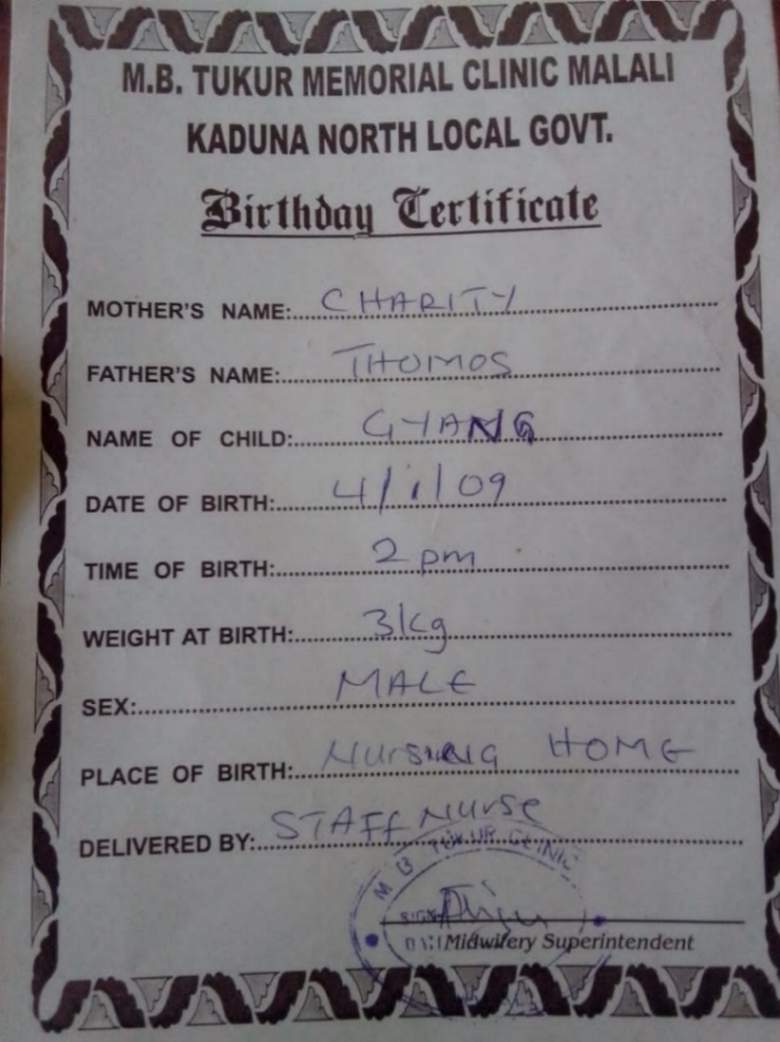 M.B. TUKUR MEMORIAL CLINIC MALALI
KADUNA NORTH LOCAL GOVT.
Birthday Certificate
MOTHER'S NAME: CHARITY
FATHER'S NAME: THOMOS
NAME OF CHILD: GYANG
DATE OF BIRTH: 4/1/09
TIME OF BIRTH: 2pm
WEIGHT AT BIRTH: 3kg
SEX: MALE
PLACE OF BIRTH: Nursing HOME
DELIVERED BY: STAFF Nurse
M B TUKUR CLINIC
SIGN
Midwifery Superintendent